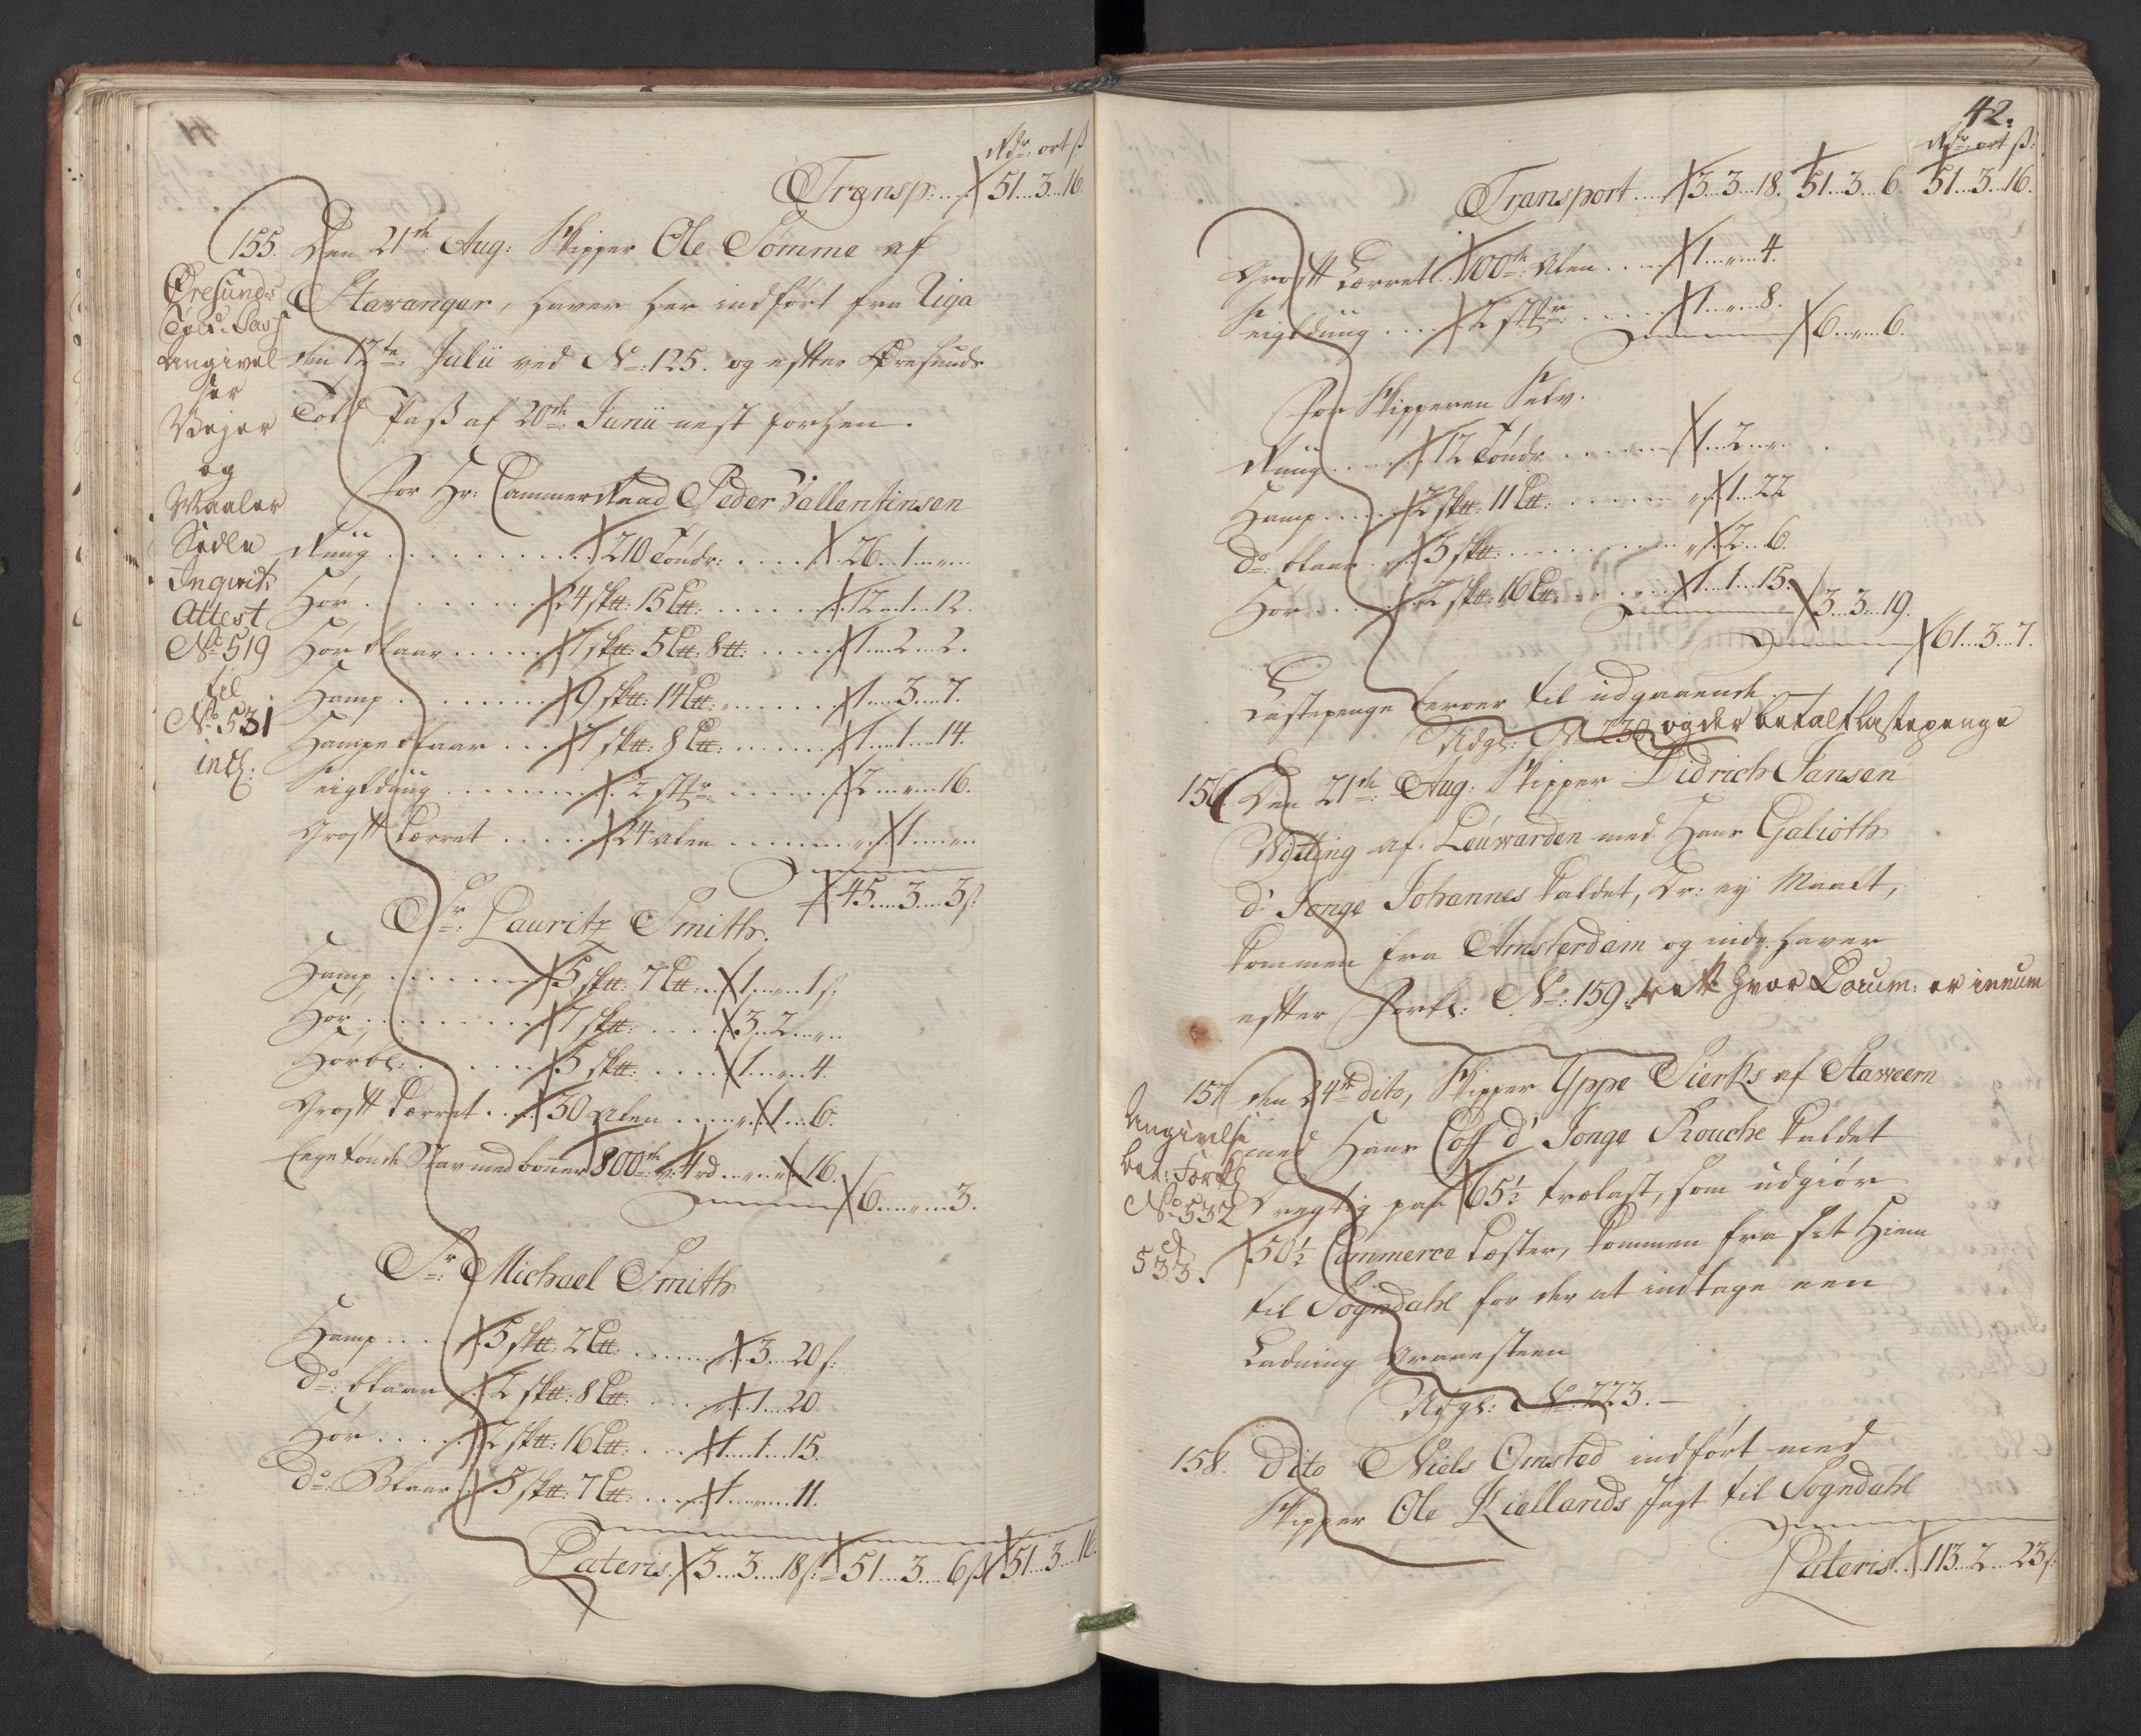 Rdr: ort ß
Transp: 51 3 16
155. Den 21de Aug: Skipper Ole Somme af
Stavanger, haver her indført fra Riga
den 12te Julii ved No: 125. og efter Øresunds
Told Pass af 20de Junii nest forhen.
Øresunds
Told-Pass
Angivel
ser
Vejer
og
Maaler
Sedle
Inqvit:
Attest
No 519
til
No 531
incl:
For Hr: Cammer Raad Peder Vallentinsen
Rung 210 Tønder: 26 1 "
Hør 24 sk℔: 15 L℔: 12 1 12.
Hør Blaar 7 sk℔: 5 L℔: 8 ℔: 1 2 2.
Hamp 9 sk℔: 14 L℔: 1 3 7.
Hampe Blaar 7 sk℔: 8 L℔: 1 1 14.
Seigldüüg 2 2 " 16.
Groft Lærret 24 Alen " 1 "
45 3 3 s:
Sr: Lauritz Smith.
Hamp 5 sk℔: 7 L℔: 1 " 1 s:
Hør 7 sk℔: 3 2 "
Hørbl: 5 sk℔: 1 " 4.
Groft Lærret 30 Alen " 1 6.
Eege tønde Stav med bonner 800de 4rd " " 16.
6 " 3.
Sr: Michael Smith
Hamp 5 sk℔: 2 L℔: " 3 20 s:
do: blaar 2 sk℔: 8 L℔: " 1 20
Hør 2 sk℔: 16 L℔: 1 1 15.
do: Blaar 5 sk℔: 7 L℔: 1 " 11.
Lateris 3 3 18 s: 51 3 6 ß 51 3 16.
42.
Rdr: ort ß:
Transport 3 3 18. 51 3 6. 51 3 16.
Groft Lærret 100de Alen 1 " 4.
Seigldüüg 1 " 8.
6 " 6.
For Skipperen Selv.
Rüüg 12 Tønder 1 2 "
Hamp 2 sk℔: 11 L℔: " 1 22
do: blaar 3 sk℔: " 2 6.
Hør 2 sk℔: 16 L℔: 1 1 15.
3 3 19.
61 3 7.
Lastepenge beroer til udgaaende.
Udgl: No 230 og der betalt Lastepenge
156. Den 21de Aug: Skipper Didrich Jansen
Wytting af Leuwarden med Hans Galioth
d' Jonge Johannes kaldet, Dr: ey Maalt,
kommen fra Amsterdam og inde haver
efter Fortl: No: 159. hvor Docum: er innum
157. den 24de dito, Skipper Yppe Sierks af Staweern
med Hans Coff d' Jonge Rouche kaldet
Drægtig paa 65½ trælast, som udgiør
50½ Commerce Læster, kommen fra sit Hiem
til Sogndahl for der at indtage een
Ladning Graaesteen
Udgl: No: 223.
Angivelse
ber: Fortl
No 532
et
533.
158. Dito Niels Omsted indført med
Skipper Ole Kiellands Jagt til Sogndahl
Lateris 113 2 23 s: